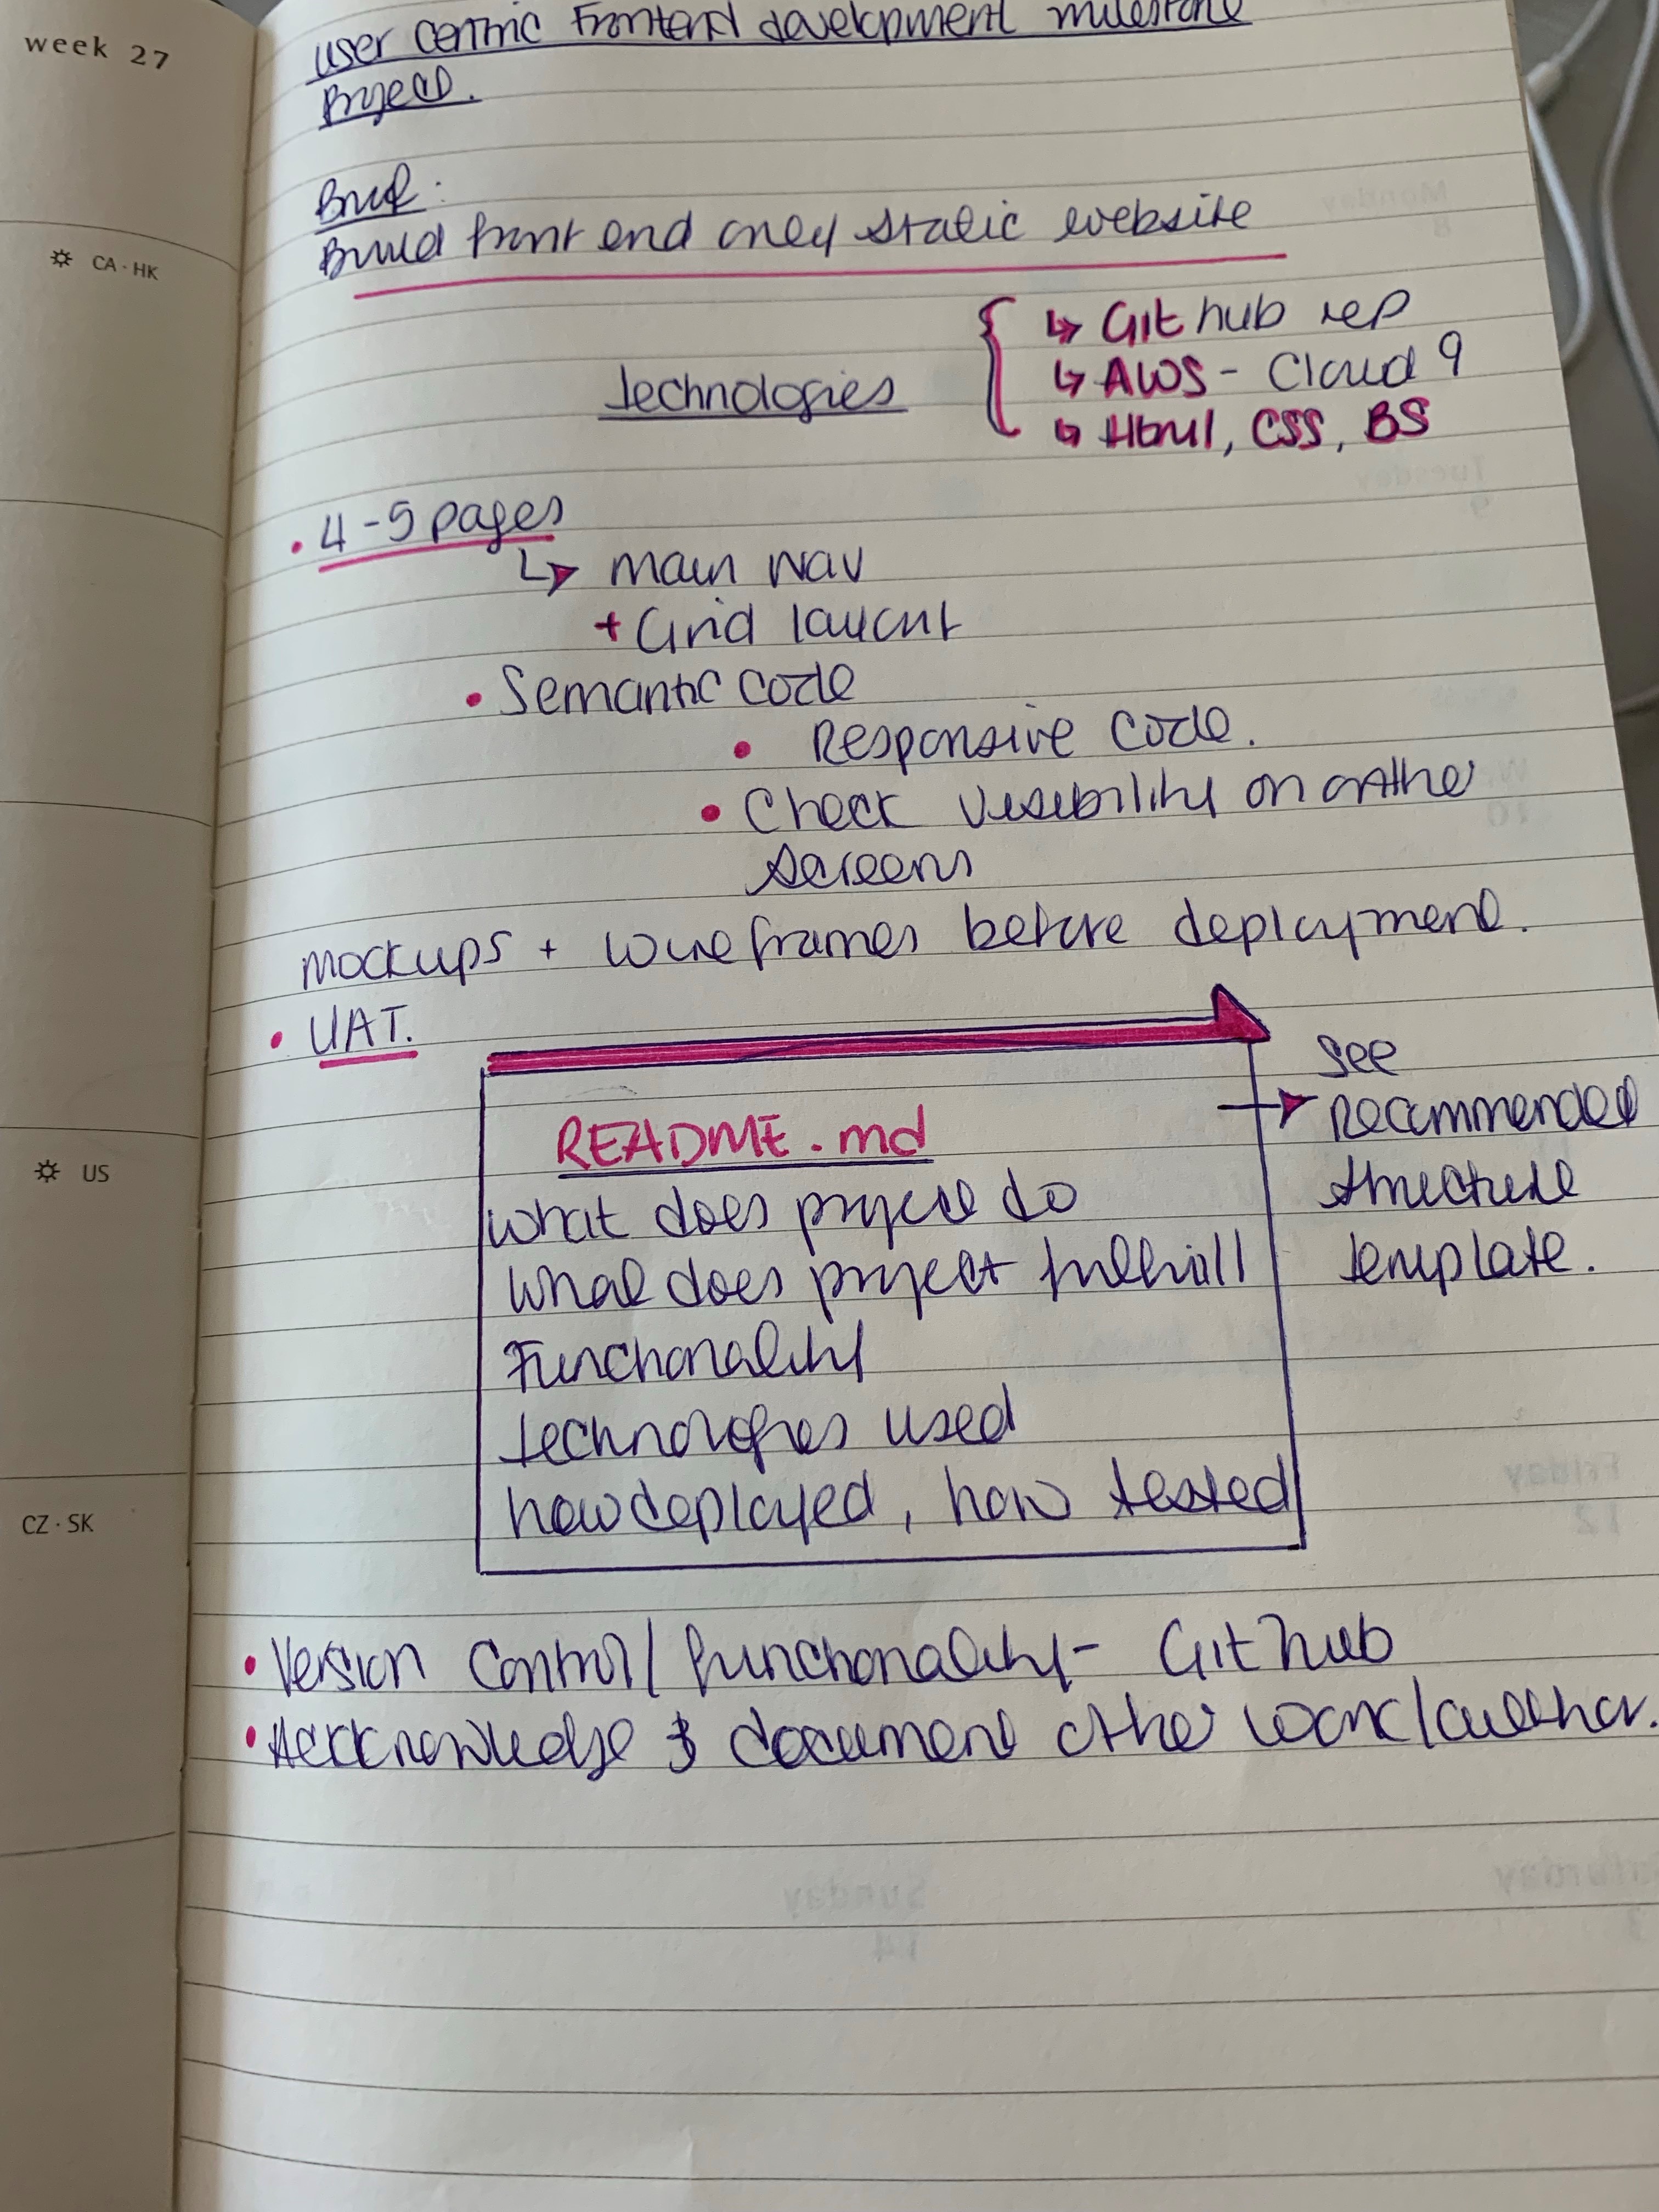 week 27
CA · HK
US
CZ · SK
User Centric Frontend development milestone
Project.
Brief:
Build front end only static website
Technologies
↳ Github rep
↳ AWS - Cloud 9
↳ Html, CSS, BS
• 4-5 pages
↳ main nav
+ Grid layout
• Semantic code
• Responsive code.
• Check visibility on other
screens
mockups + wireframes before deployment.
• UAT.
README.md
what does project do
what does project fulfill
Functionality
technologies used
how deployed, how tested
→ see
recommended
structure
template.
• Version Control/functionality - Github
• Ackknowledge & document other work/author.
Monday
8
Tuesday
9
10
Friday
12
Saturday
Sunday
14